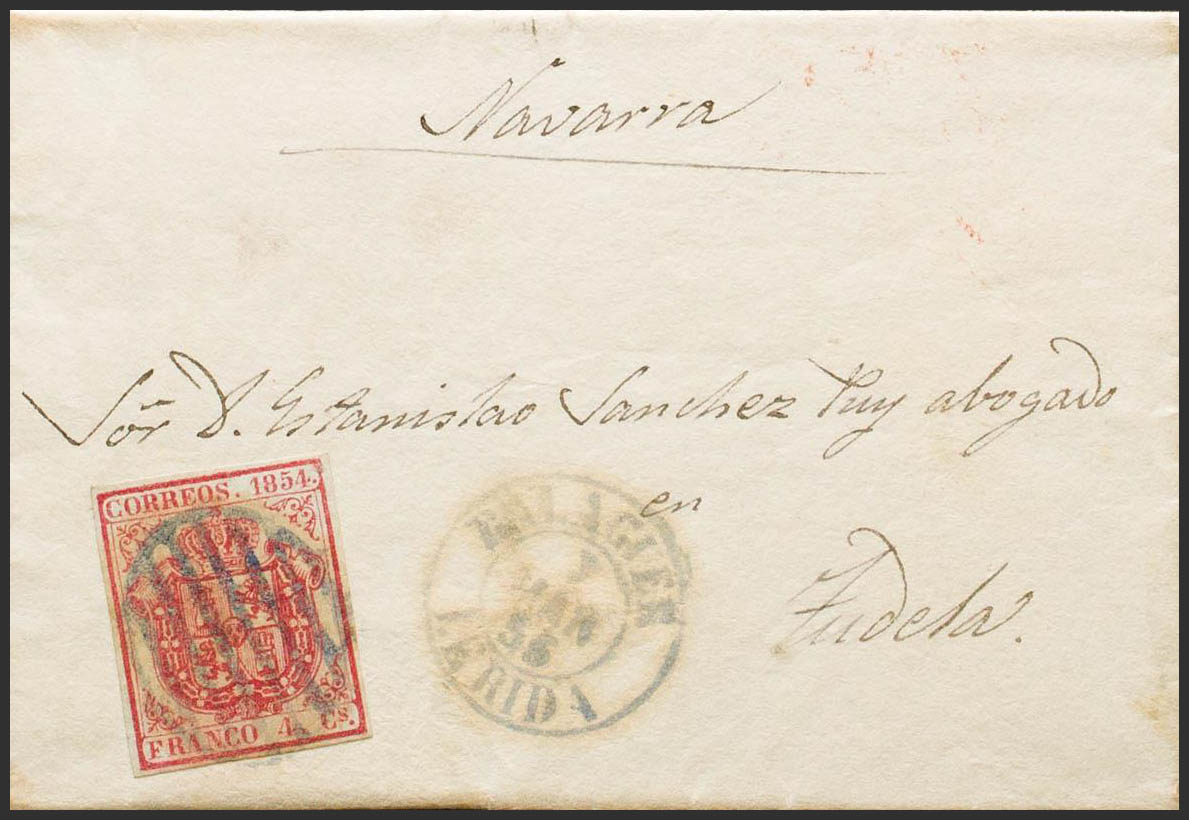 Navarra
Sōr D. Estanislao Sanchez Puy abogado
en
Tudela.
CORREOS. 1854.
FRANCO 4 Cs.
BALAGUER
LERIDA